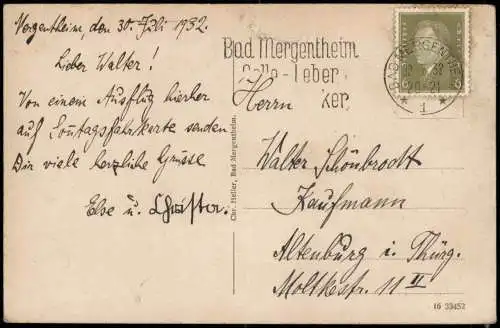 Mergentheim, den 30. Juli 1932.
Lieber Walter!
Von einem Ausflug hierher
auf Sonntagsfahrkarte senden
Dir viele herzliche Grüsse
Else u. Christa.
Chr. Heller, Bad Mergentheim.
Bad Mergentheim
Galle-Leber
ker
BAD MERGENTHEIM
32
20-21
* 1 *
Herrn
Walter Schönbrodt
Kaufmann
Altenburg i. Thürg.
Moltkestr. 11 II
16 33452